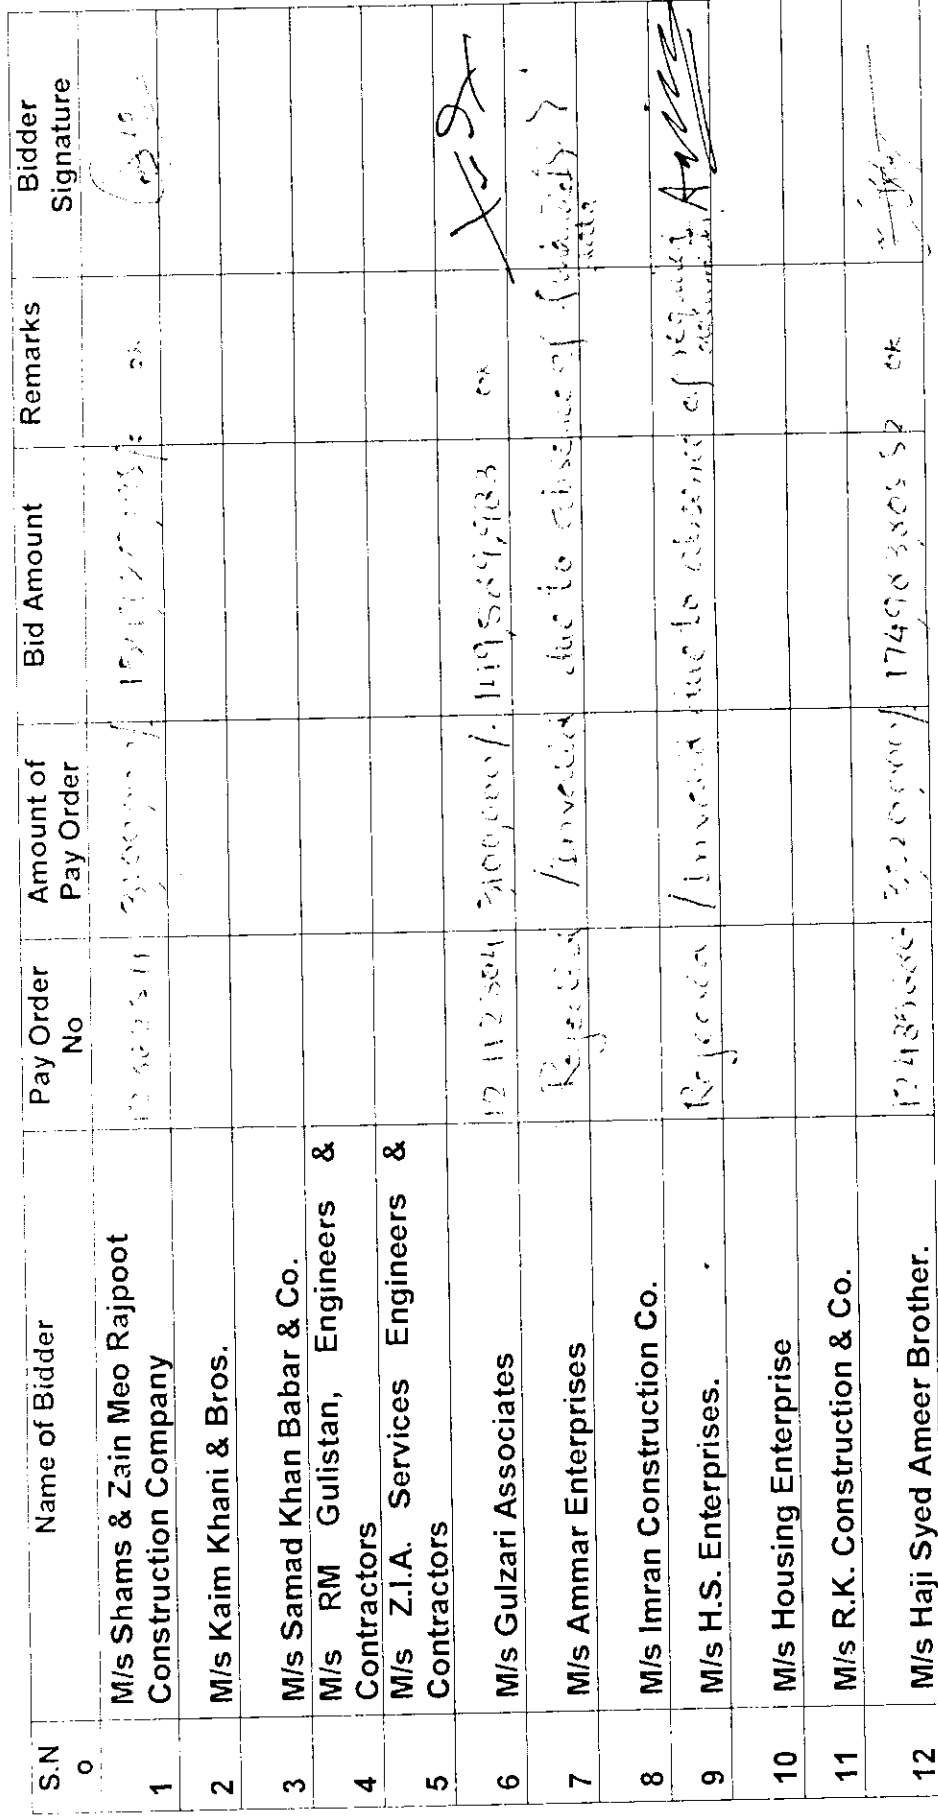 S.N
o
Name of Bidder
Pay Order
No
Amount of
Pay Order
Bid Amount
Remarks
Bidder
Signature
1
M/s Shams & Zain Meo Rajpoot
Construction Company
ok
2
M/s Kaim Khani & Bros.
3
M/s Samad Khan Babar & Co.
4
M/s RM Gulistan, Engineers &
Contractors
5
M/s Z.I.A. Services Engineers &
Contractors
6
M/s Gulzari Associates
3100,000/.
ok
7
M/s Ammar Enterprises
Rejected /invalid due to absence of
8
M/s Imran Construction Co.
9
M/s H.S. Enterprises.
Rejected /invalid due to absence of
10
M/s Housing Enterprise
11
M/s R.K. Construction & Co.
12
M/s Haji Syed Ameer Brother.
ok